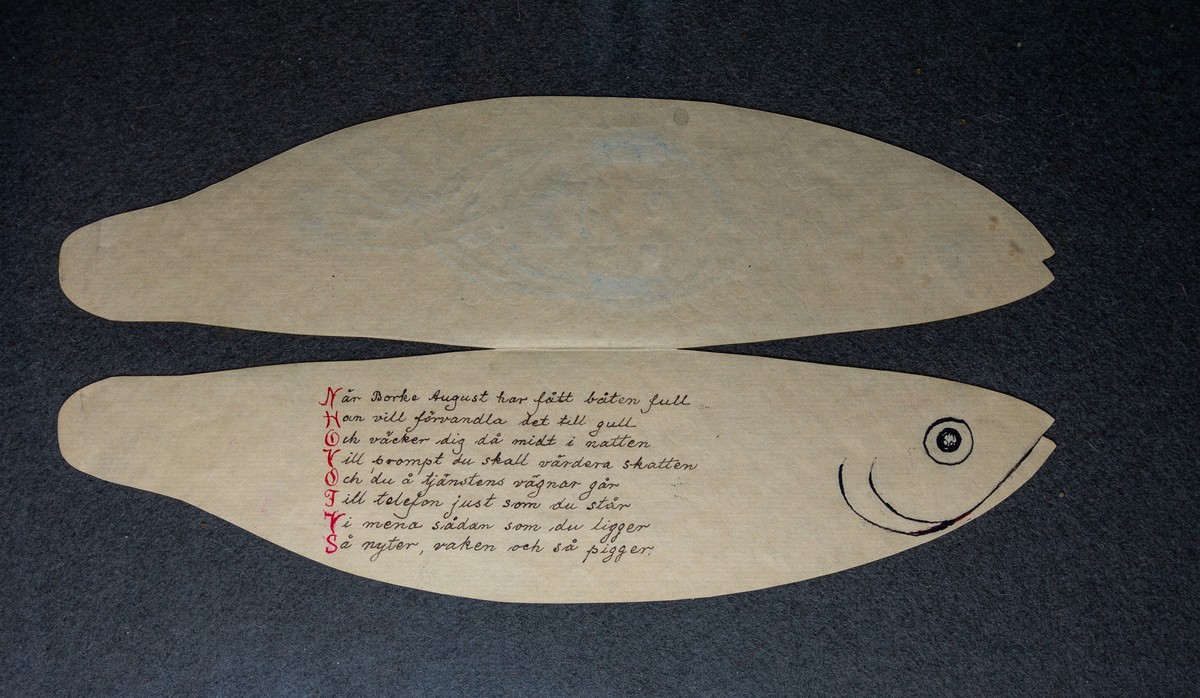 När Borke August har fått båten full
Han vill förvandla det till gull
Och väcker dig då midt i natten
Vill prompt du skall värdera skatten
Och du å tjänstens vägnar går
Till telefon just som du står
Vi mena sådan som du ligger
Så nyter, vaken och så pigger.